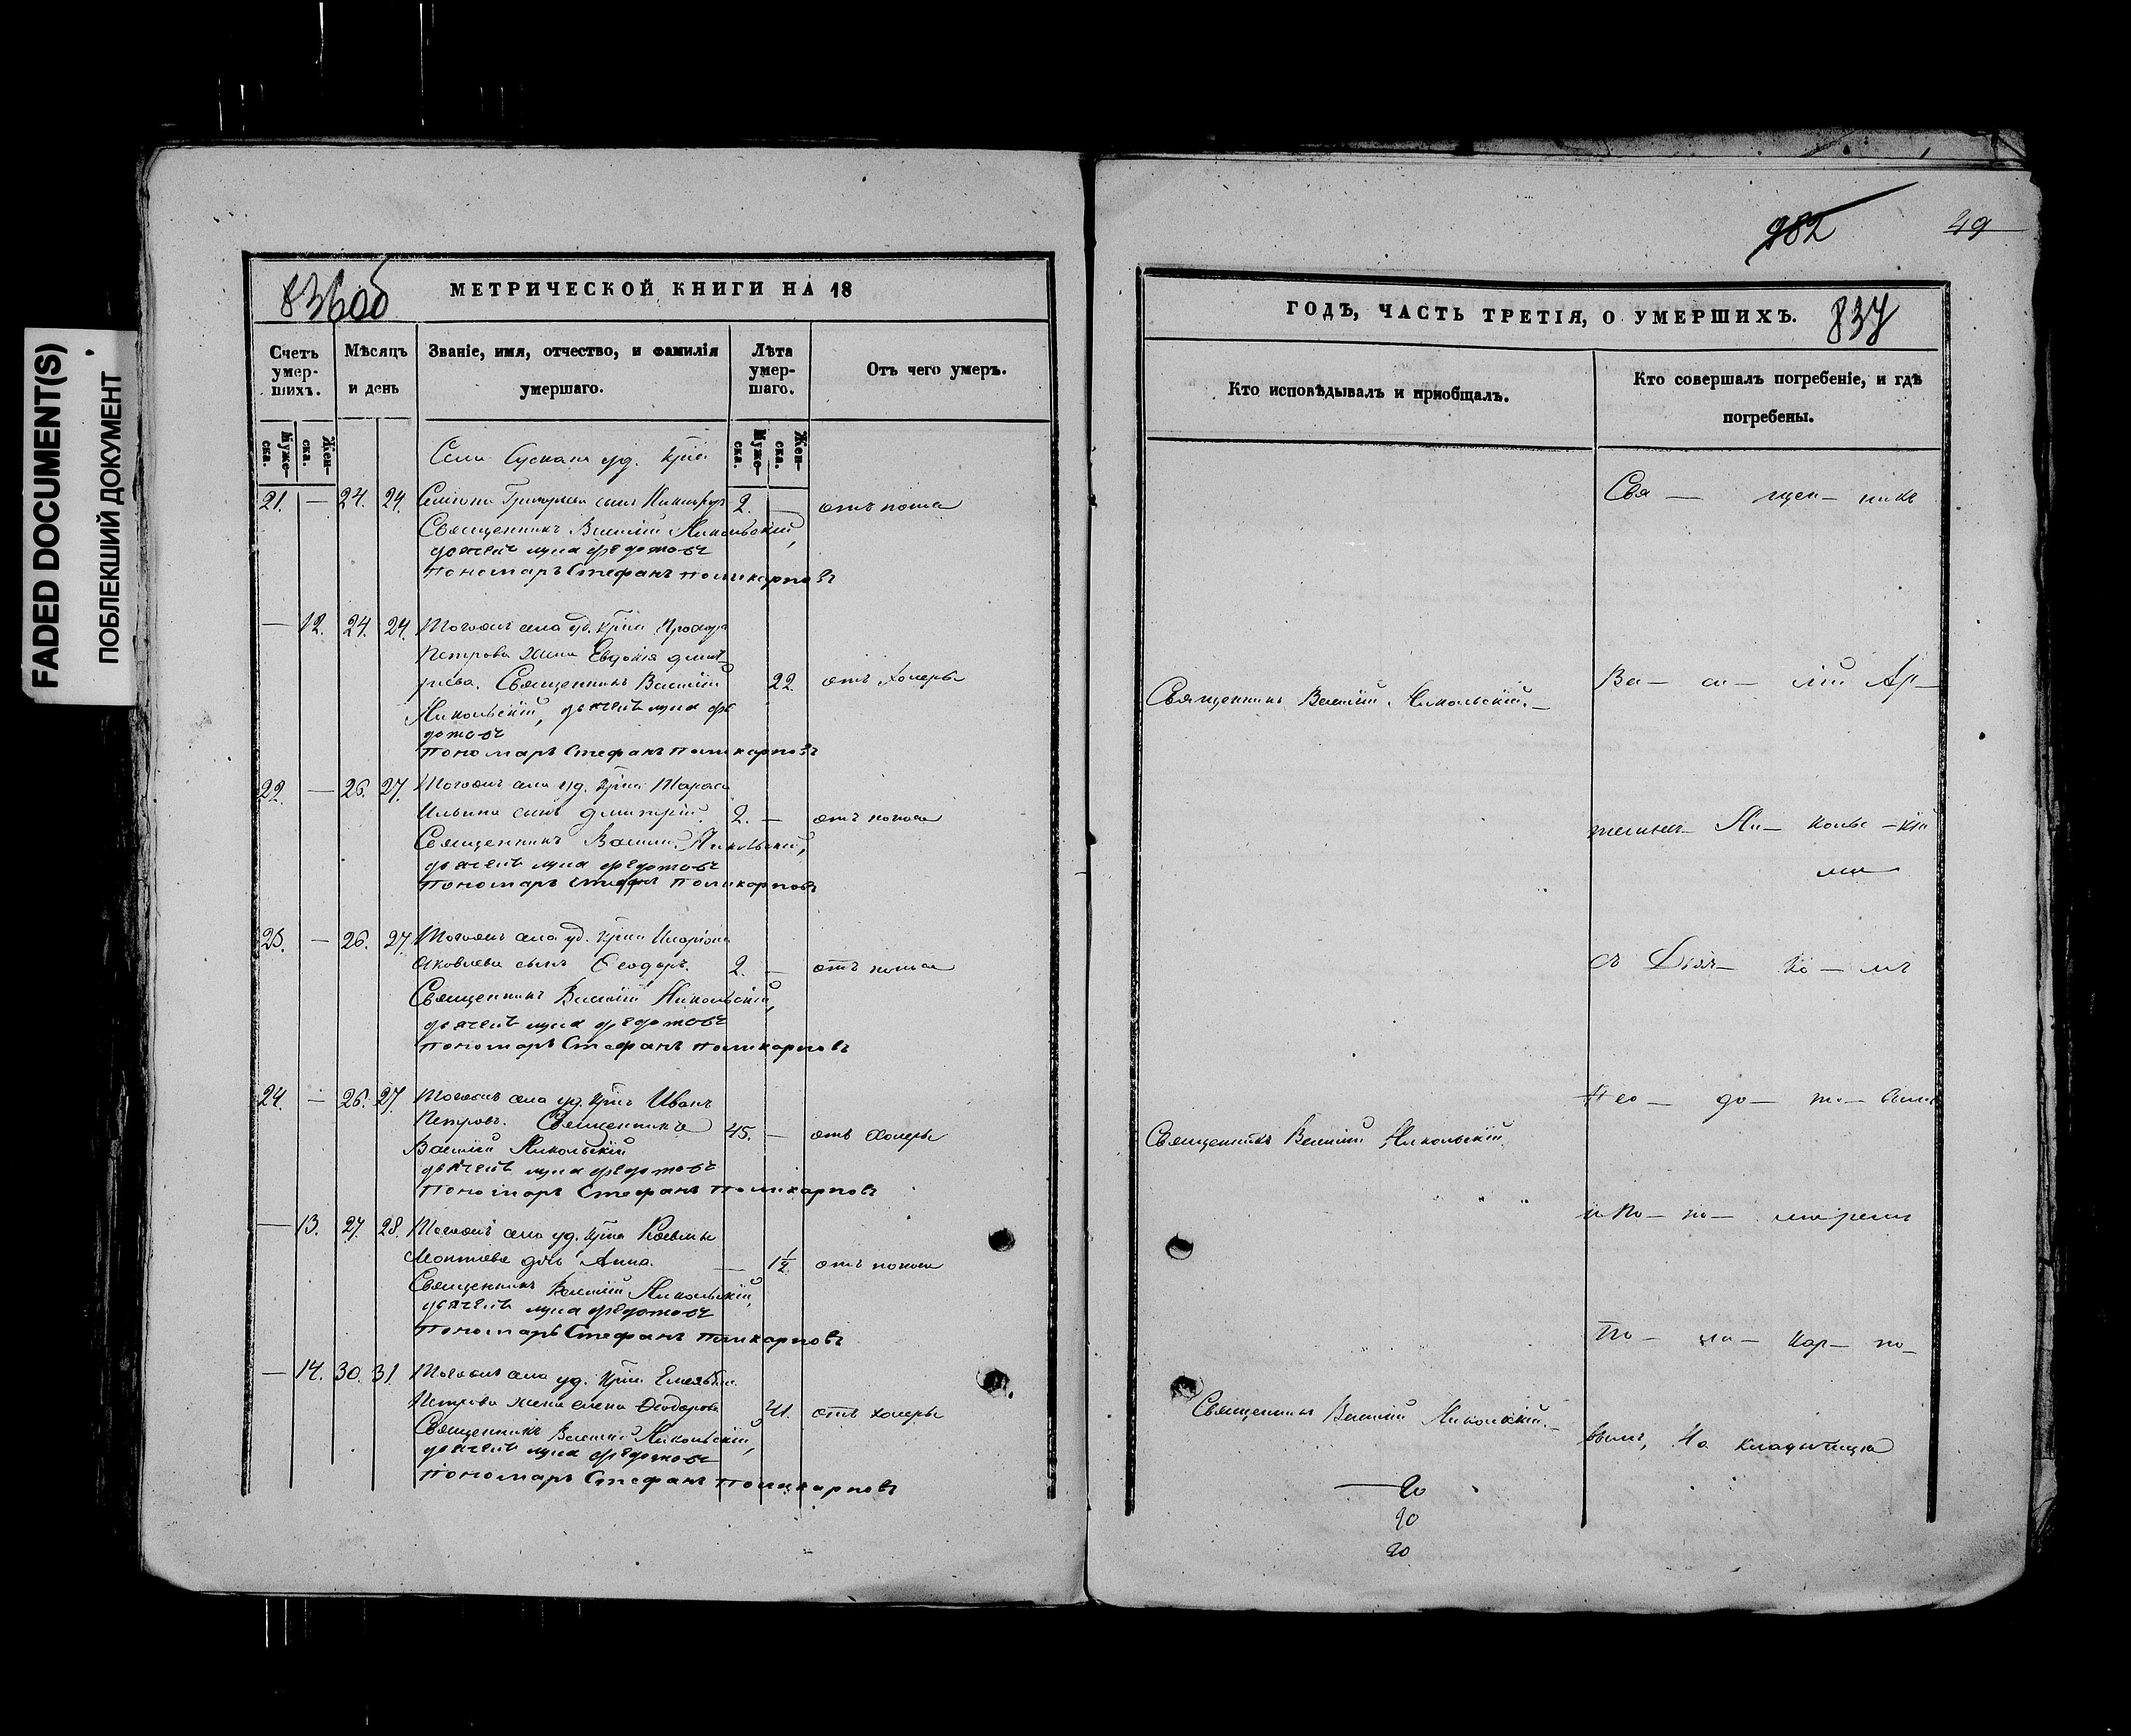 FADED DOCUMENT(S)
ПОБЛЕКШИЙ ДОКУМЕНТ
836об
МЕТРИЧЕСКОЙ КНИГИ НА 18
Счетъ умер- шихъ.
Мѣсяцъ и день
Званіе, имя, отчество, и фамилія умершаго.
Лѣта умер- шаго.
Отъ чего умеръ.
Муже- ска.
Жен- ска.
Муже- ска.
Жен- ска.
Села Сускана уд. крес
21. — 24. 24. Симеона Григорьева сынъ 2. — отъ поноса
Священникъ Василій Никольскій,
дьячекъ лука федотовъ
пономарь Стефанъ поликарповъ
— 12. 24. 24. Тогожъ села уд. крес Прохора
Петрова жена Евдокія дмит-
ріева. Священникъ Василій 22. отъ холеры
Никольскій, дьячекъ лука фе
дотовъ
пономарь Стефанъ поликарповъ
22. — 26. 27. Тогожъ села уд. крес Тараса
Ильина сынъ дмитрій. 2. — отъ поноса
Священникъ Василій Никольскій,
дьячекъ лука федотовъ
пономарь Стефанъ поликарповъ
23. — 26. 27. Тогожъ села уд. крес Иларіона
Яковлева сынъ Ѳеодоръ. 2. — отъ поноса
Священникъ Василій Никольскій,
дьячекъ лука федотовъ
пономарь Стефанъ поликарповъ
24. — 26. 27. Тогожъ села уд. крес Иванъ
Петровъ. Священникъ 45. — отъ холеры
Василій Никольскій
дьячекъ лука федотовъ
пономарь Стефанъ поликарповъ
— 13. 27. 28. Тогожъ села уд. крес Козьмы
Леонтьева дочь Анна. — 1½ отъ поноса
Священникъ Василій Никольскій,
дьячекъ лука федотовъ
пономарь Стефанъ поликарповъ
— 14. 30. 31. Тогожъ села уд. крес Емельяна
Петрова жена елена Ѳеодорова 41. отъ холеры
Священникъ Василій Никольскій,
дьячекъ лука федотовъ
пономарь Стефанъ поликарповъ
982
49
ГОДЪ, ЧАСТЬ ТРЕТІЯ, О УМЕРШИХЪ.
837
Кто исповѣдывалъ и пріобщалъ.
Кто совершалъ погребеніе, и гдѣ погребены.
Свя — щен — никъ
Священникъ Василій Никольскій. —
Ва — си — лій Ар —
Ни — коль — скій
съ Дьяч — ко — мъ
Священникъ Василій Никольскій.
и По — но — маремъ
По — ли — кар — по —
Священникъ Василій Никольскій. —
вымъ, На кладбищѣ
20
20
20